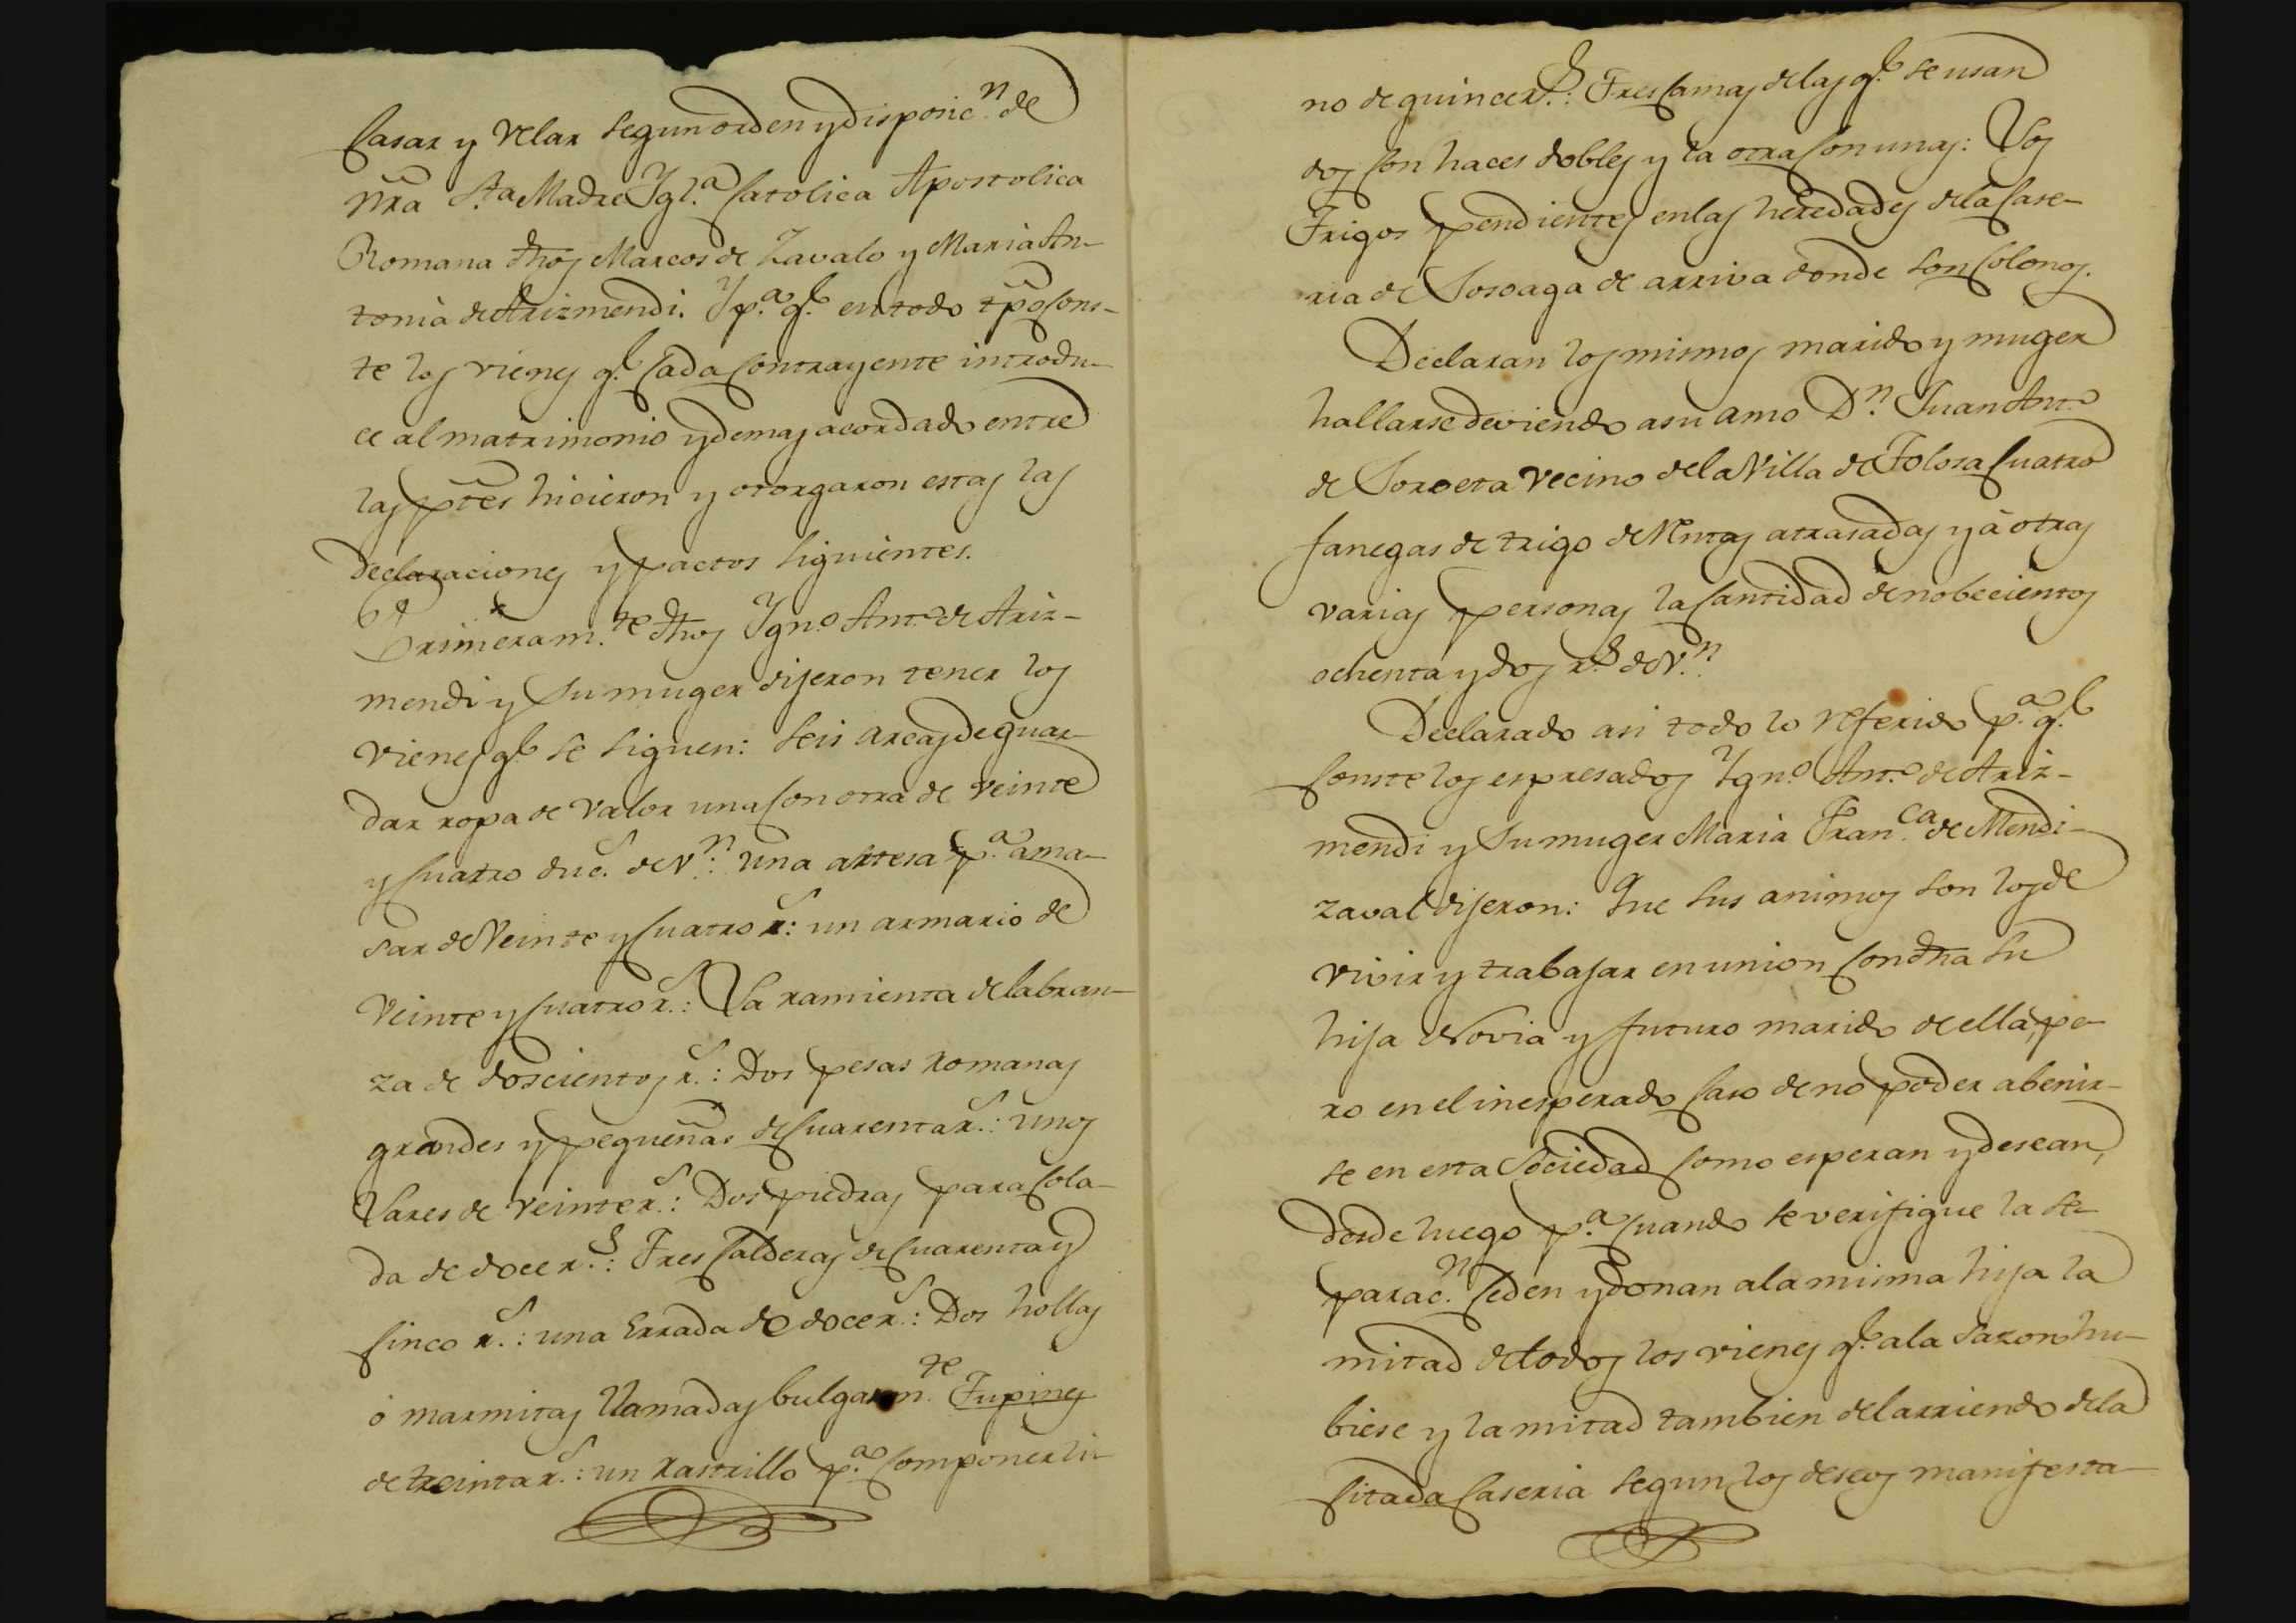 Casar y velar segun orden y disposic.n de
nra Sta Madre Igl.a Catolica Apostolica
Romana dhos Marcos de Zavalo y Maria An-
tonia de Arizmendi. Y p.a q.e en todo tpo cons-
te los vienes q.e cada contrayente introdu-
ce al matrimonio y demas acordado entre
las ptes hicieron y otorgaron estas las
declaraciones y pactos siguientes.
Primeram.te dhos Ign.o Ant.o de Ariz-
mendi y su muger dijeron tener los
vienes q.e se siguen: seis arcas de guar-
dar ropa de valor una con otra de veinte
y cuatro duc.s de v.n: una artesa p.a ama-
sar de veinte y cuatro r.s: un armario de
veinte y cuatro r.s: La ramienta de labran-
za de doscientos r.s: Dos pesas romanas
grandes y pequeñas de cuarenta r.s: unos
Lares de veinte r.s: Dos piedras para cola-
da de doce r.s: Tres calderas de cuarenta y
cinco r.s: una Errada de doce r.s: Dos hollas
ó marmitas llamadas bulgarm.te Tupines
de treinta r.s: un Rastrillo p.a componer li-
no de quince r.s: Tres camas de las q.e se usan
dos con haces dobles y la otra con unas: Los
Trigos pendientes en las heredades de la Case-
ria de Sosoaga de arriva donde son colonos.
Declaran los mismos marido y muger
hallarse deviendo a su amo D.n Juan Ant.o
de Soroeta vecino de la Villa de Tolosa cuatro
fanegas de trigo de rentas atrasadas y á otras
varias personas la cantidad de nobecientos
ochenta y dos r.s de v.n
Declarado asi todo lo referido p.a q.e
conste los espresados Ign.o Ant.o de Ariz-
mendi y su muger Maria Fran.ca de Mendi-
zaval dijeron: Que sus animos son los de
vivir y trabajar en union con dha su
hija Novia y futuro marido de ella, pe-
ro en el inesperado caso de no poder abenir-
se en esta Sociedad como esperan y desean,
desde luego p.a cuando se verifique la se-
parac.n ceden y donan a la misma hija la
mitad de todos los vienes q.e a la sazon hu-
biese y la mitad tambien del arriendo de la
citada Caseria segun los deseos manifesta-